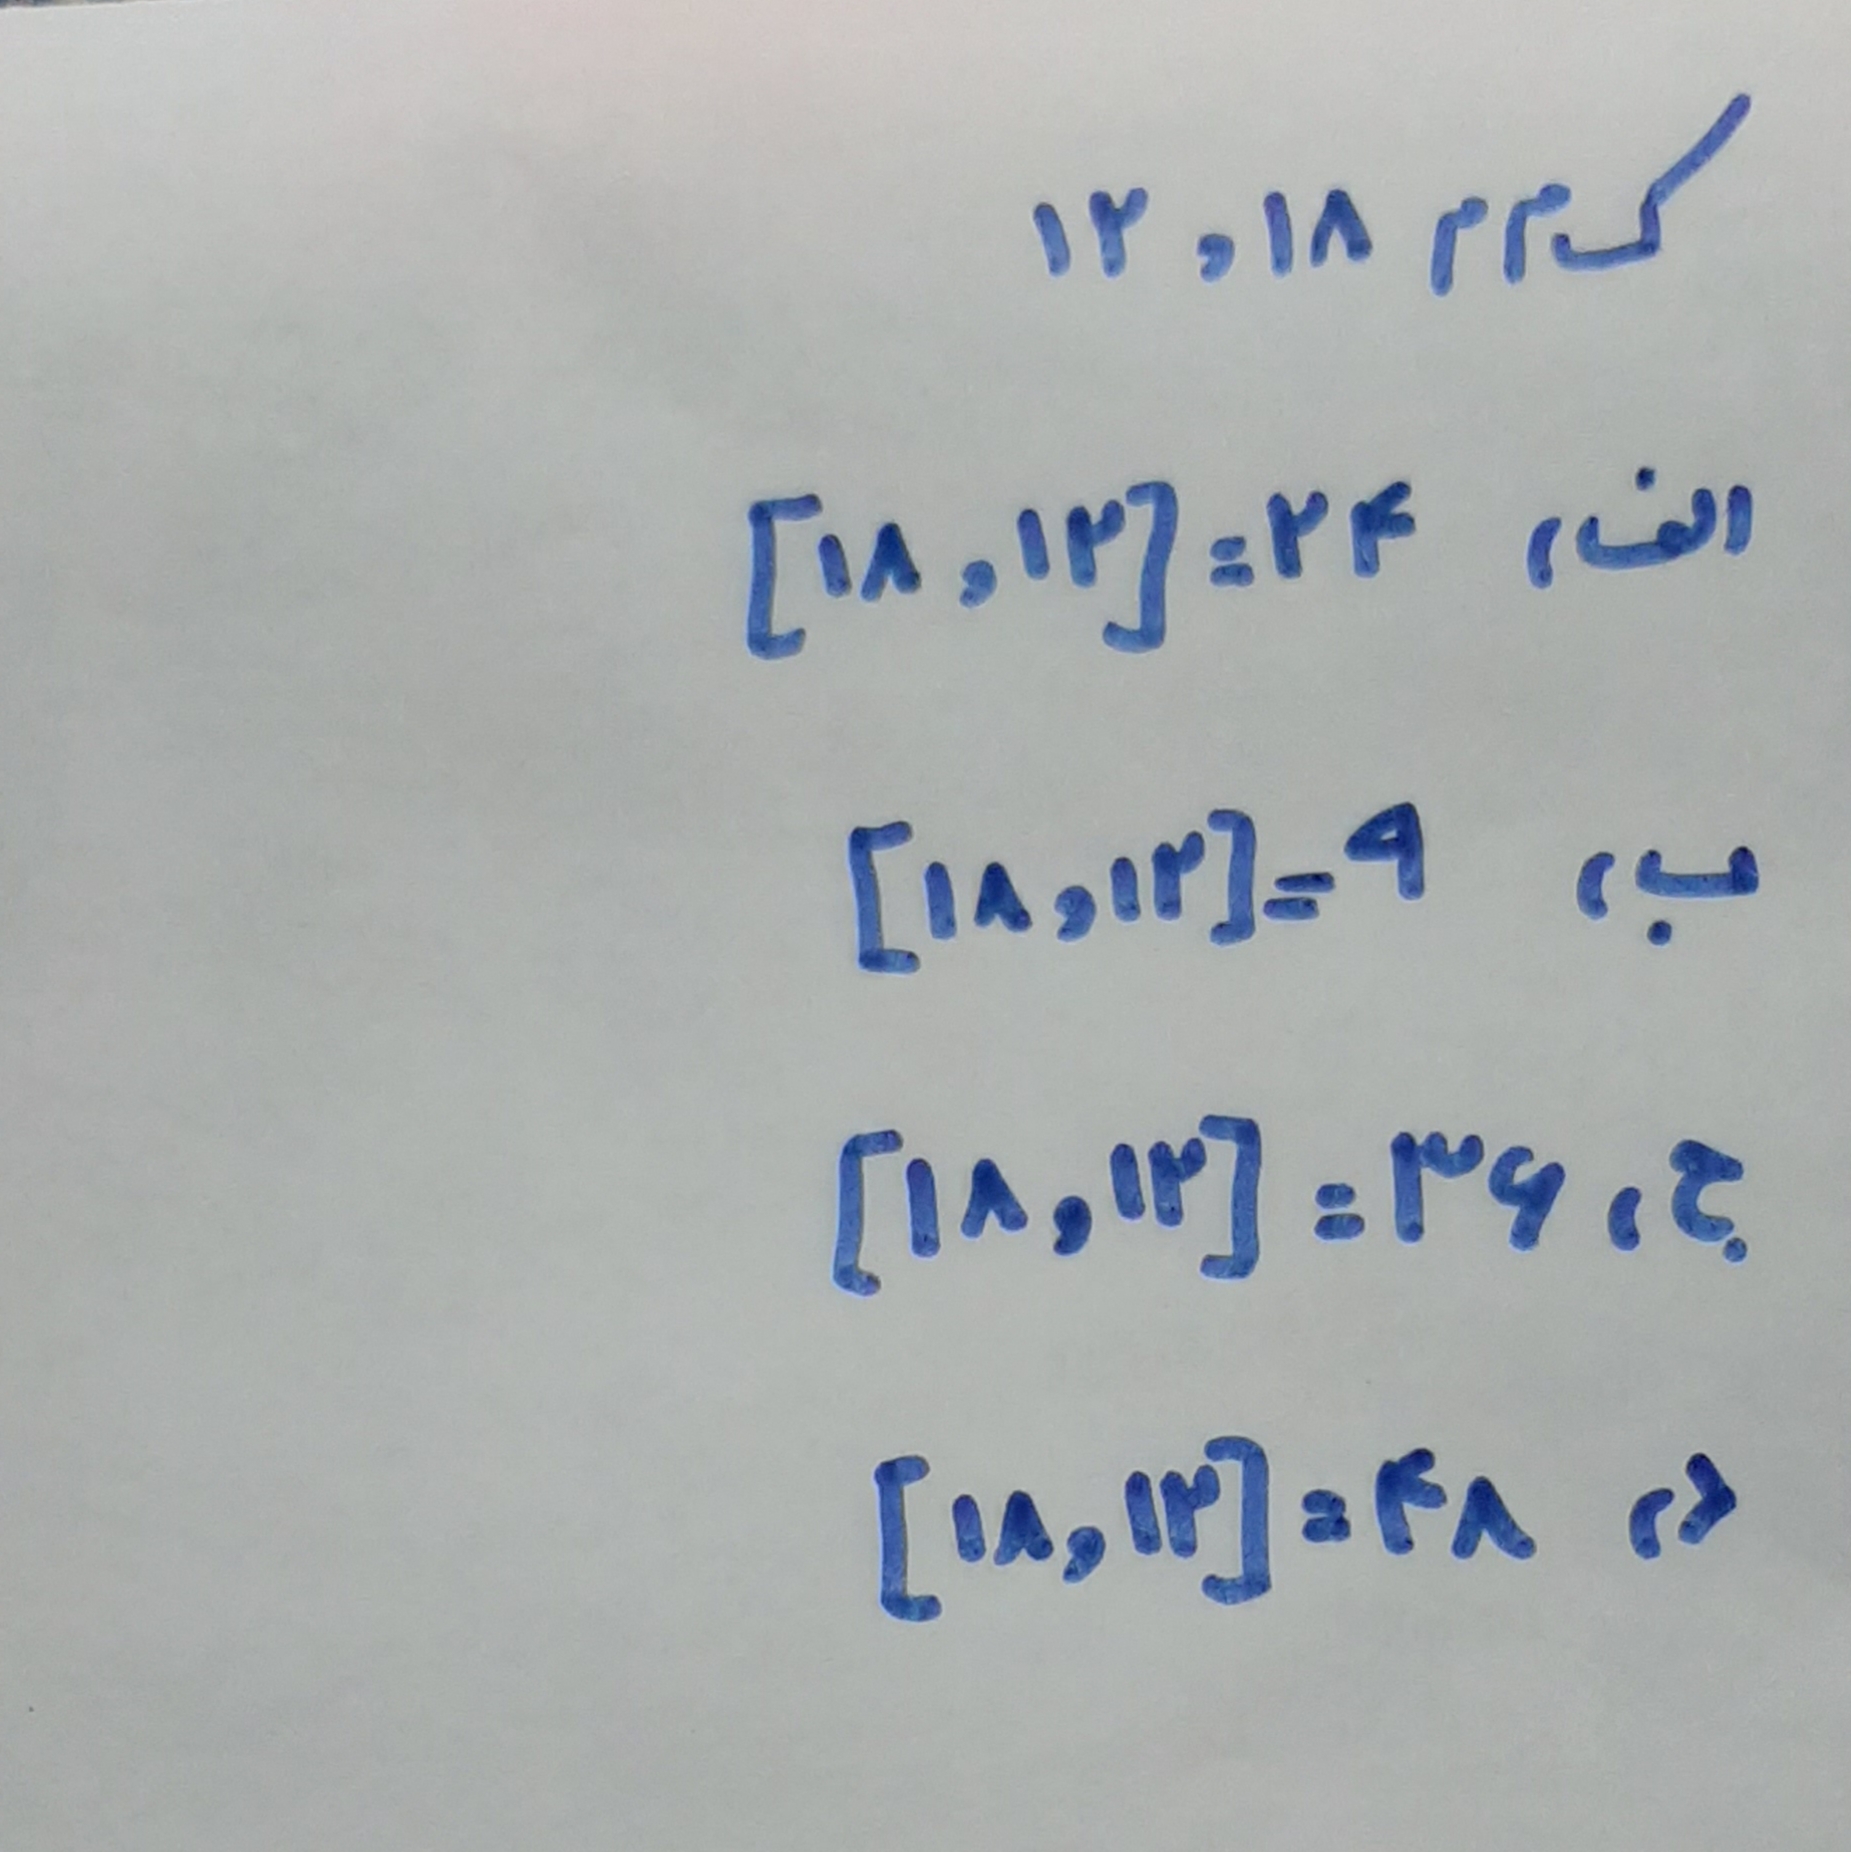 ک م م ۱۸ , ۱۲
الف، [۱۸ , ۱۲] = ۲۴
ب، [۱۸ , ۱۲] = ۹
ج، [۱۸ , ۱۲] = ۳۶
د، [۱۸ , ۱۲] = ۴۸